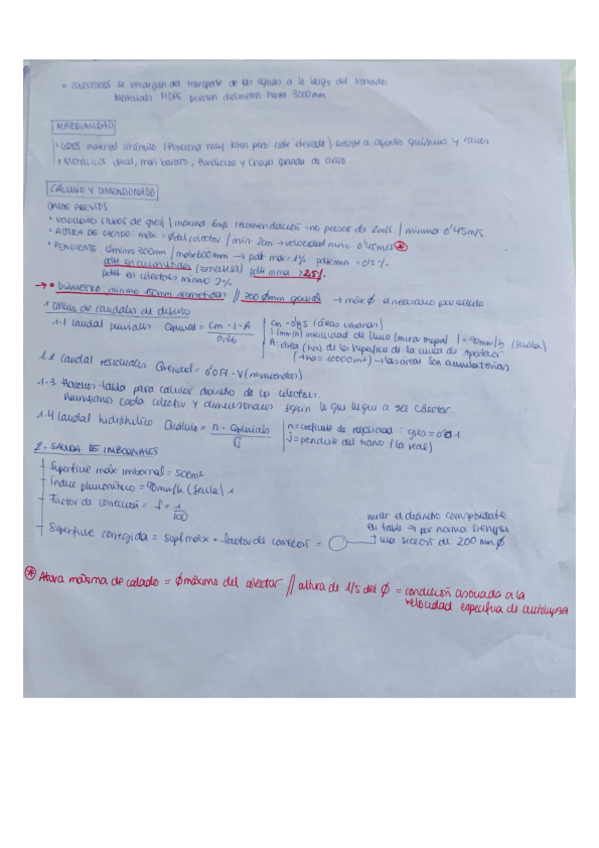 • COLECTORES se encargan del transporte de las aguas a lo largo del trazado
Materiales HDPE diámetro hasta 3000mm
MATERIALIDAD
• GRES material cerámico (funciona muy bien pero coste elevado) Resiste a agentes químicos y raíces
• METÁLICOS usual, más barato, fundición y chapa de acero
CÁLCULO Y DIMENSIONADO
DATOS PREVIOS
• VELOCIDAD (tubos de gres) / máxima 6m/s recomendación no pasar de 2m/s / mínima 0'45m/s
• ALTURA DE CALADO: máx = Øtotal colector / mín 2cm → velocidad mín 0'45m/s *
• PENDIENTE Ømínimo 300mm / 600mm → pdt máx = 1% pdte mín = 0'2%
pdte en acometidas pdte mínima 2'5%
pdte en colectores mínimo 2%
→ • DIÁMETRO: mínimo 150mm acometidas // 300 Ømm general → máx Ø el necesario por cálculo
1 Cálculo de caudales de diseño
1.1 Caudal pluviales Qpluvial = Cm · I · A / 0,36
Cm = 0'95 (áreas urbanas)
I (mm/h) intensidad de lluvia (mirar mapa) I = 90mm/h (Sevilla)
A: área (ha) de la superficie de la cuenca de aportación
(1ha = 10000m²) → las áreas son acumulatorias
1.2 Caudal residuales = 0'0 · V (nº viviendas)
1.3 Hacemos tabla para calcular diámetro de los colectores.
Numeramos cada colector y dimensionamos según lo que llegue a ese colector.
1.4 Caudal hidráulico Qcálculo = n · Qpluviales / √j
n = coeficiente de rugosidad : gres = 0'01
j = pendiente del tramo (la real)
2. SALIDA DE IMBORNALES
- Superficie máx imbornal = 500m²
- Índice pluviométrico = 90mm/h (Sevilla) i
- Factor de corrección = f = i / 100
- Superficie corregida = Supf máx · factor de corrección =
mirar el diámetro correspondiente
en tabla → por norma siempre
usa sección de 200 mm Ø
* Altura máxima de calado = Ø máximo del colector // altura de 1/5 del Ø = condición asociada a la
velocidad específica de autolimpieza